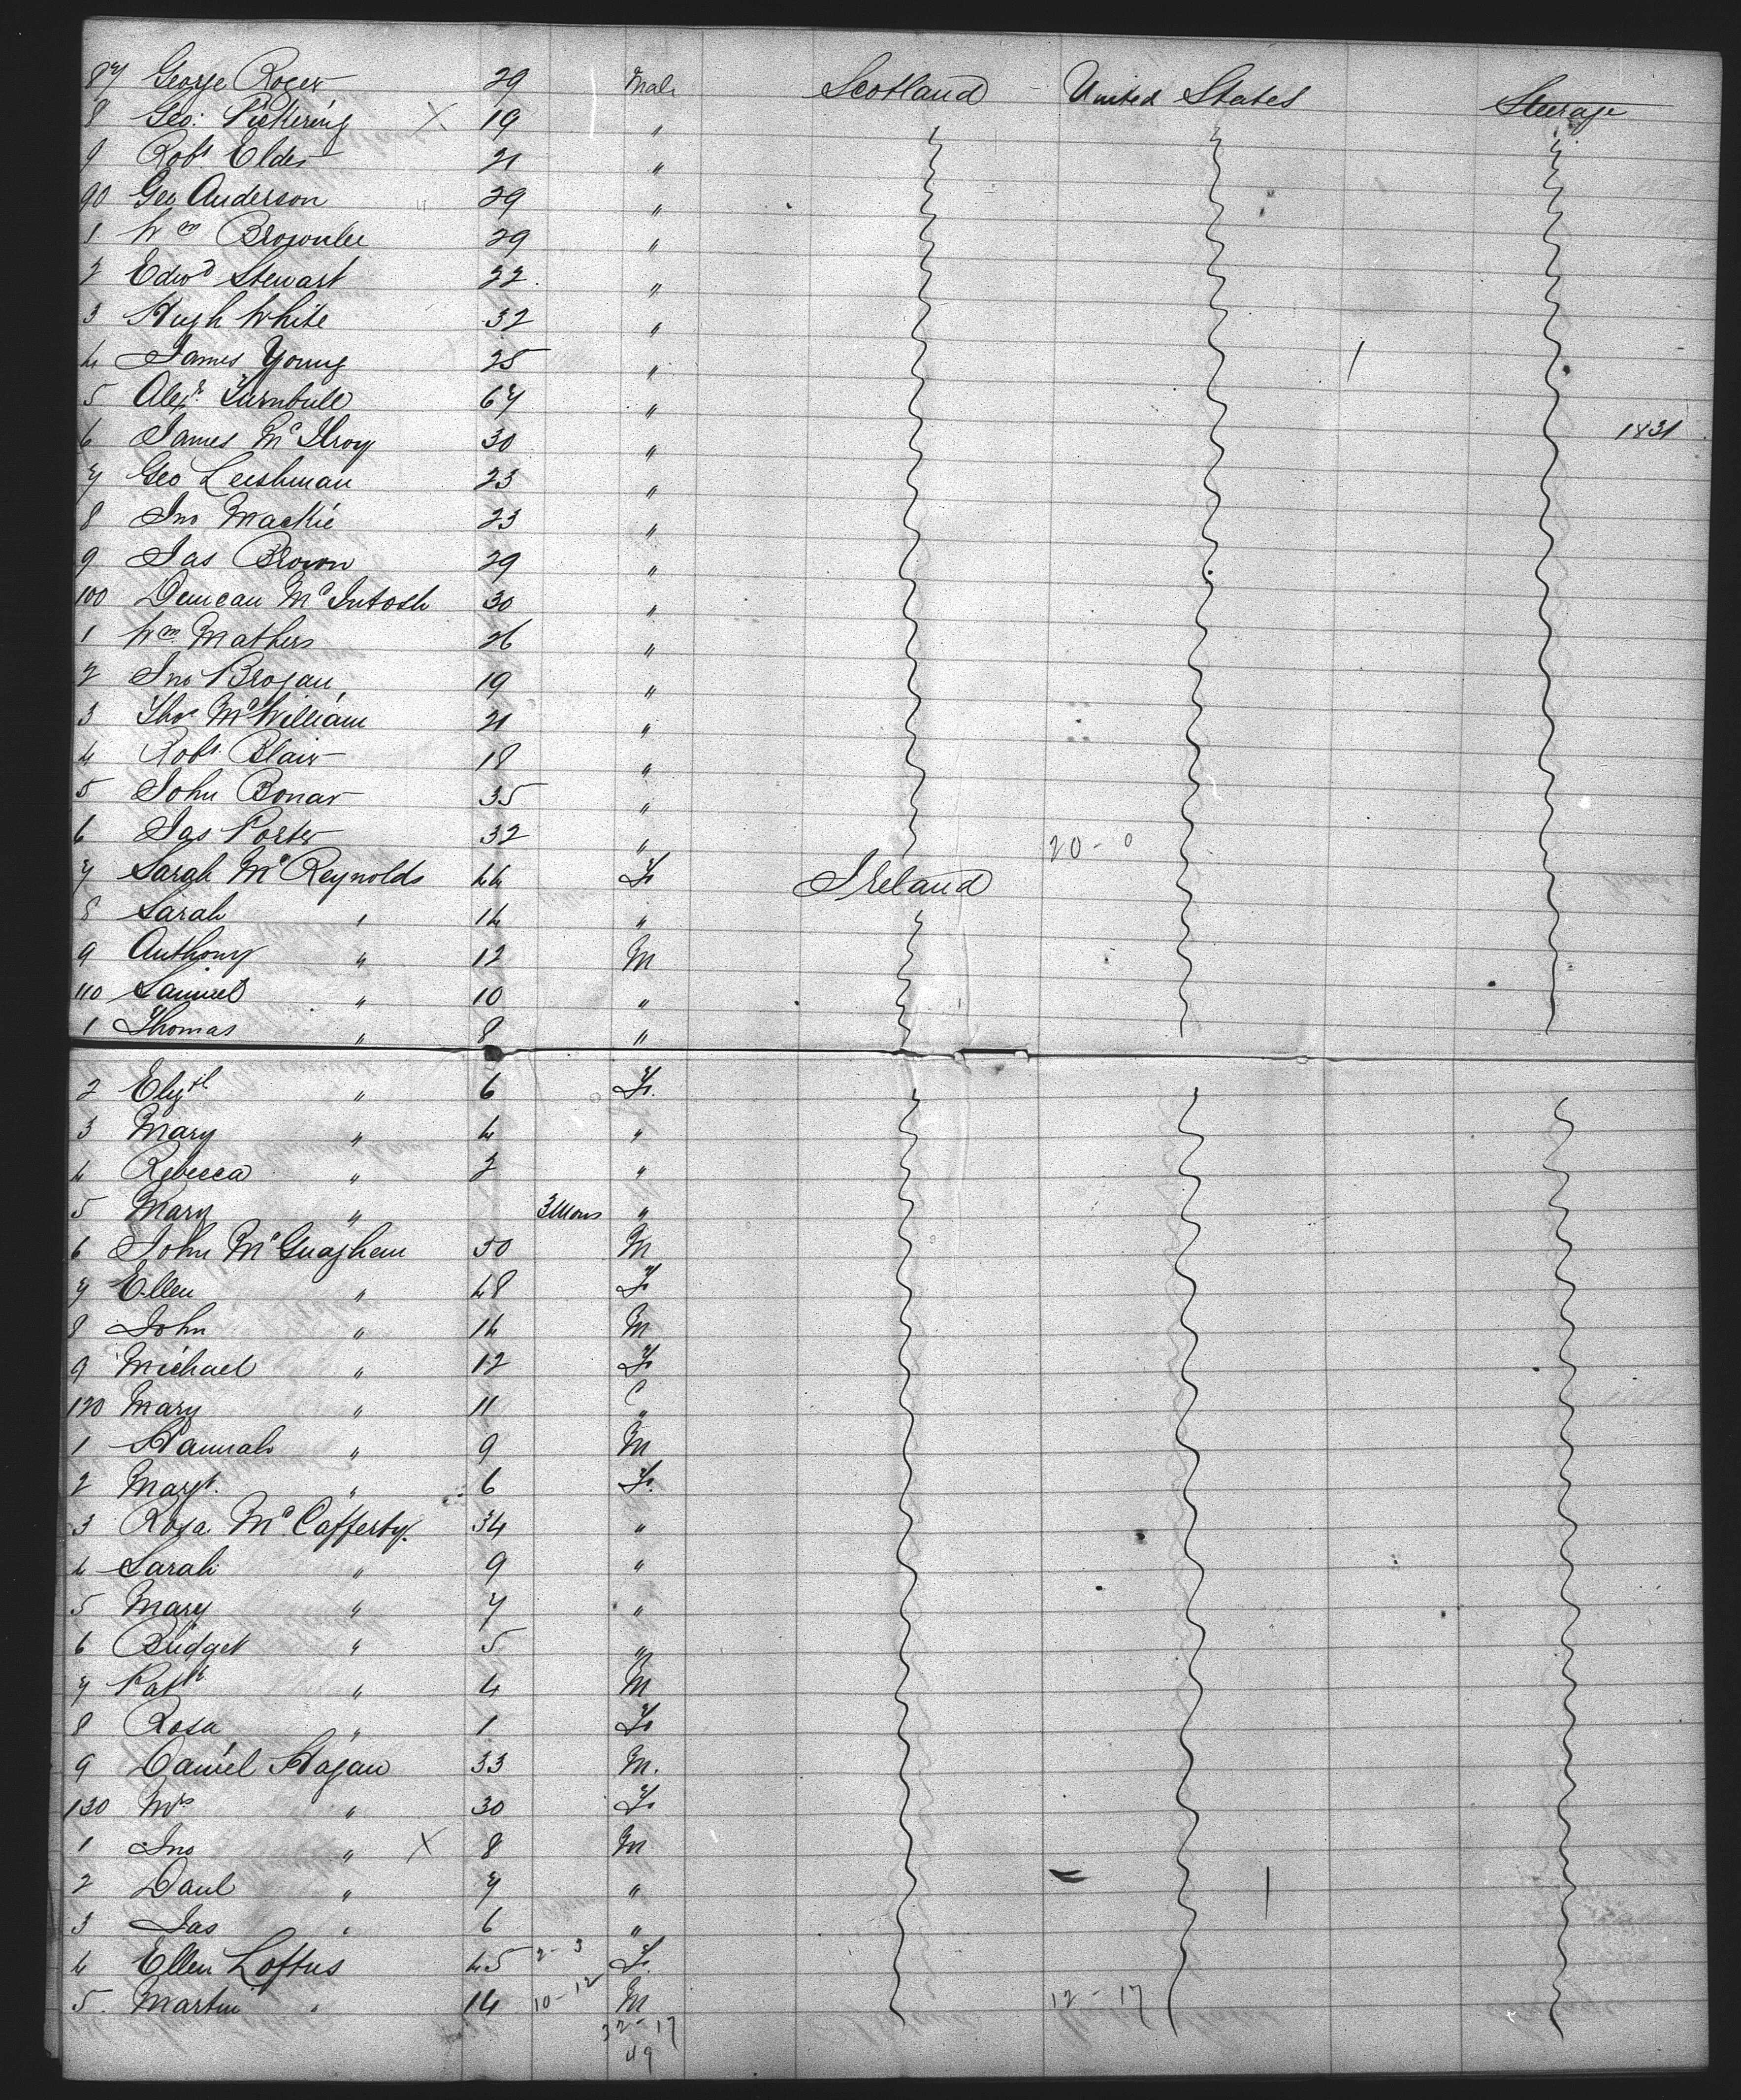 87 George Roger 29 Male Scotland United States Steerage
8 Geo: Pickering X 19 "
9 Robt Elder 21 "
90 Geo Anderson 29 "
1 Wm Brownlee 29 "
2 Edwd Stewart 22 "
3 Hugh White 32 "
4 James Young 25 "
5 Alexr Turnbull 67 "
6 James McIlroy 30 " 1831
7 Geo Leishman 23 "
8 Jno Mackie 23 "
9 Jas Brown 29 "
100 Duncan McIntosh 30 "
1 Wm Mathers 26 "
2 Jno Brogan 19 "
3 Thos McWilliam 21 "
4 Robt Blair 18 "
5 John Bonar 35 "
6 Jas Porter 32 " 20-0
7 Sarah McReynolds 44 F Ireland
8 Sarah " 14 "
9 Anthony " 12 M
110 Samuel " 10 "
1 Thomas " 8 "
2 Elizth " 6 F.
3 Mary " 4 "
4 Rebecca " 2 "
5 Mary " 3 Mons "
6 John McGuaghan 50 M
7 Ellen " 48 F
8 John " 14 M
9 Michael " 12 F
120 Mary " 11 "
1 Hannah " 9 M
2 Margt. " 6 F.
3 Rosa McCafferty. 34 "
4 Sarah " 9 "
5 Mary " 7 "
6 Bridget " 5 "
7 Patk " 4 M
8 Rosa " 1 F
9 Daniel Hagan 33 M.
130 Mrs " 30 F
1 Jno " X 8 M
2 Danl " 7 "
3 Jas " 6 "
4 Ellen Loftus 45 2-3 F.
5. Martin " 14 10-12 M 12-17
32-17
49